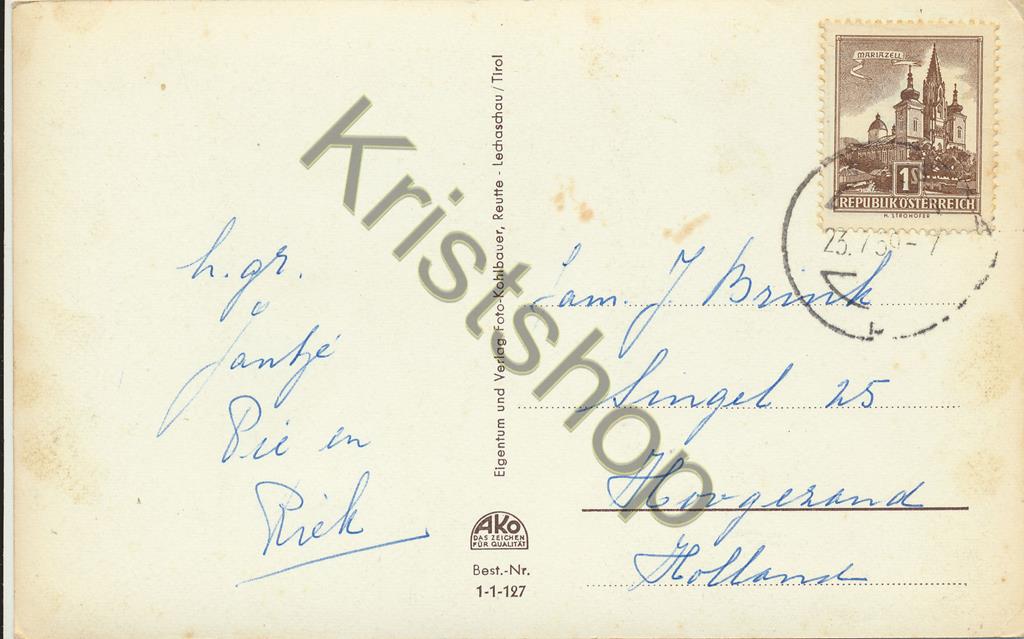 h. gr.
Jantje
Pie en
Riek
Eigentum und Verlag Foto-Kohlbauer, Reutte - Lechaschau/Tirol
AKO
DAS ZEICHEN
FÜR QUALITÄT
Best.-Nr.
1-1-127
MARIAZELL
1S
REPUBLIK ÖSTERREICH
H. STROHOFER
23. 7 59 - 7
Fam. J Brink
Singel 25
Hoogezand
Holland
Kristshop